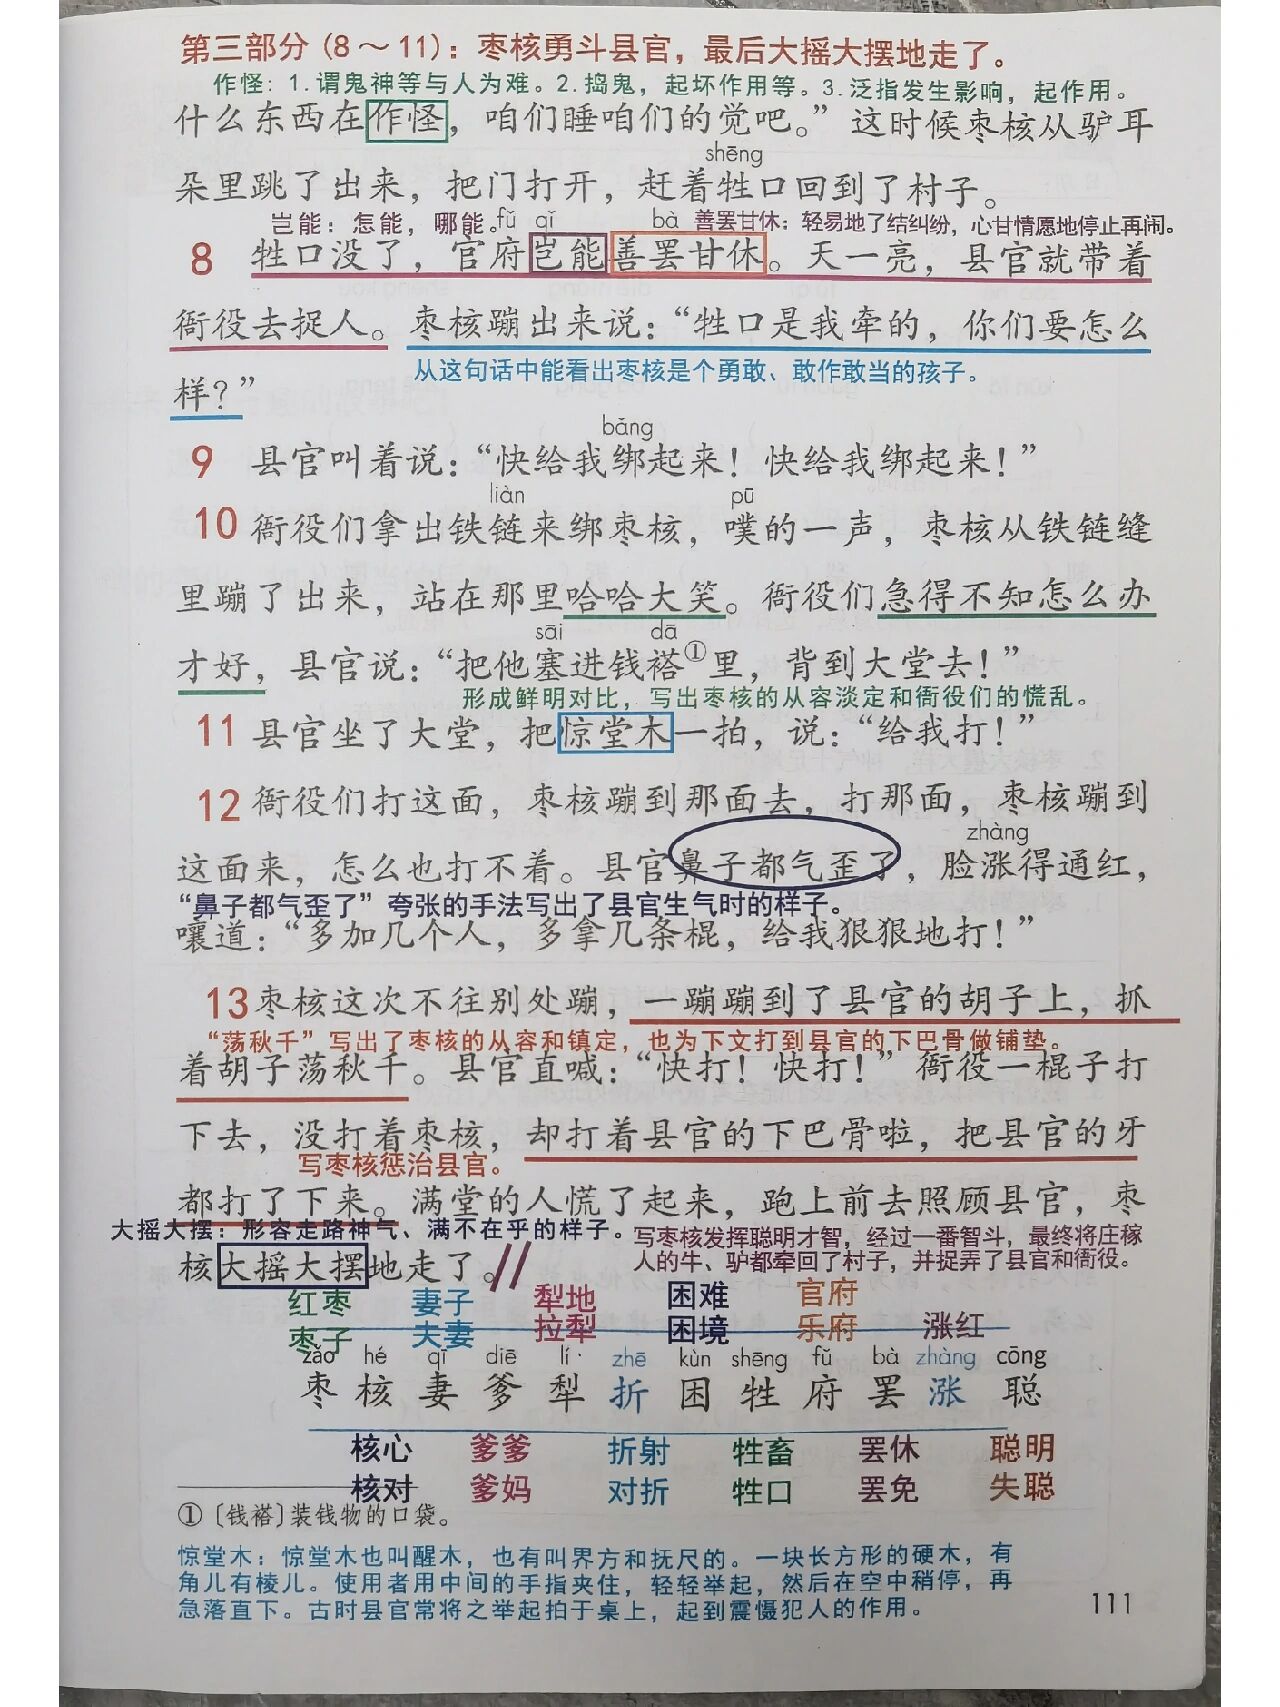 第三部分（8～11）：枣核勇斗县官，最后大摇大摆地走了。
作怪：1.谓鬼神等与人为难。2.捣鬼，起坏作用等。3.泛指发生影响，起作用。
什么东西在作怪，咱们睡咱们的觉吧。”这时候枣核从驴耳
shēng
朵里跳了出来，把门打开，赶着牲口回到了村子。
岂能：怎能，哪能。fǔ qǐ bà 善罢甘休：轻易地了结纠纷，心甘情愿地停止再闹。
8 牲口没了，官府岂能善罢甘休。天一亮，县官就带着
衙役去捉人。枣核蹦出来说：“牲口是我牵的，你们要怎么
从这句话中能看出枣核是个勇敢、敢作敢当的孩子。
样？”
bǎng
9 县官叫着说：“快给我绑起来！快给我绑起来！”
liàn pū
10 衙役们拿出铁链来绑枣核，噗的一声，枣核从铁链缝
里蹦了出来，站在那里哈哈大笑。衙役们急得不知怎么办
sāi dā
才好，县官说：“把他塞进钱褡①里，背到大堂去！”
形成鲜明对比，写出枣核的从容淡定和衙役们的慌乱。
11 县官坐了大堂，把惊堂木一拍，说：“给我打！”
12 衙役们打这面，枣核蹦到那面去，打那面，枣核蹦到
zhàng
这面来，怎么也打不着。县官鼻子都气歪了，脸涨得通红，
“鼻子都气歪了”夸张的手法写出了县官生气时的样子。
嚷道：“多加几个人，多拿几条棍，给我狠狠地打！”
13 枣核这次不往别处蹦，一蹦蹦到了县官的胡子上，抓
“荡秋千”写出了枣核的从容和镇定，也为下文打到县官的下巴骨做铺垫。
着胡子荡秋千。县官直喊：“快打！快打！”衙役一棍子打
下去，没打着枣核，却打着县官的下巴骨啦，把县官的牙
写枣核惩治县官。
都打了下来。满堂的人慌了起来，跑上前去照顾县官，枣
大摇大摆：形容走路神气、满不在乎的样子。
写枣核发挥聪明才智，经过一番智斗，最终将庄稼
人的牛、驴都牵回了村子，并捉弄了县官和衙役。
核大摇大摆地走了。
红枣 妻子 犁地 困难 官府
枣子 夫妻 拉犁 困境 乐府 涨红
zǎo hé qī diē lí zhē kùn shēng fǔ bà zhàng cōng
枣 核 妻 爹 犁 折 困 牲 府 罢 涨 聪
核心 爹爹 折射 牲畜 罢休 聪明
核对 爹妈 对折 牲口 罢免 失聪
①〔钱褡〕装钱物的口袋。
惊堂木：惊堂木也叫醒木，也有叫界方和抚尺的。一块长方形的硬木，有
角儿有棱儿。使用者用中间的手指夹住，轻轻举起，然后在空中稍停，再
急落直下。古时县官常将之举起拍于桌上，起到震慑犯人的作用。
111